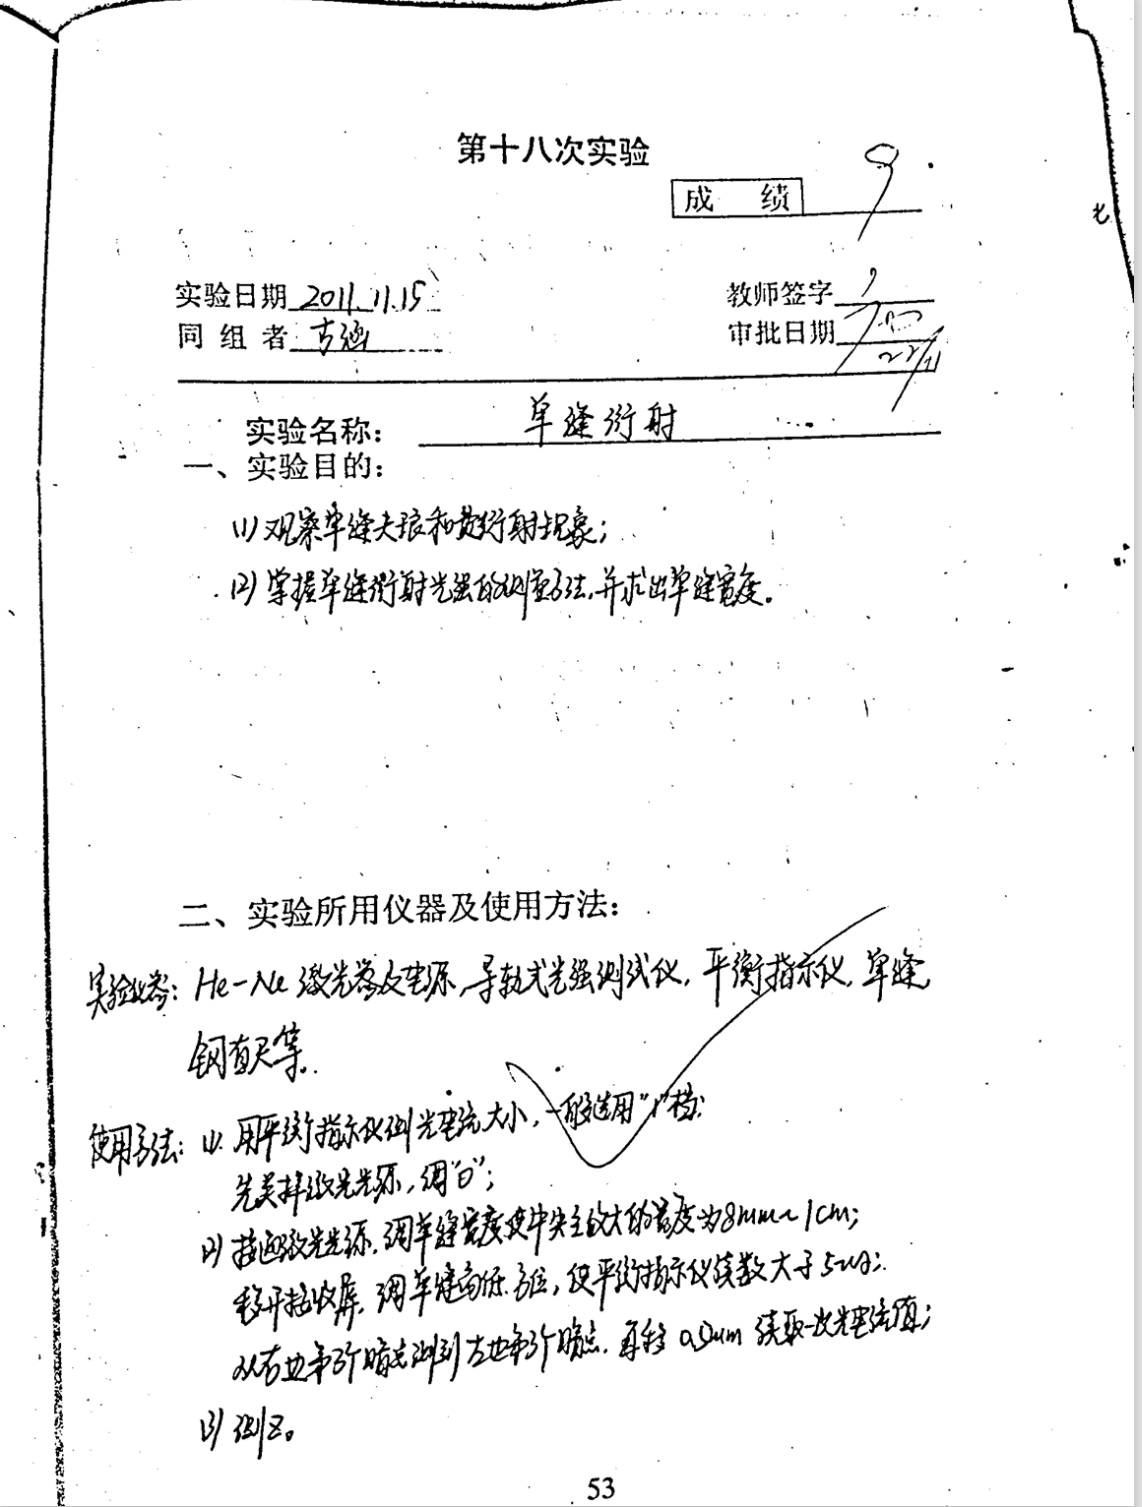 第十八次实验
成 绩 9
实验日期 2011.11.15 教师签字
同组者 古涵 审批日期 22/11
实验名称: 单缝衍射
一、实验目的:
(1) 观察单缝夫琅和费衍射现象;
(2) 掌握单缝衍射光强的测量方法,并求出单缝宽度。
二、实验所用仪器及使用方法:
实验仪器: He-Ne 激光器及电源,导轨式光强测试仪,平衡指示仪,单缝,
钢直尺等.
使用方法: (1) 用平衡指示仪测光电流大小,一般选用"1"档;
先关掉激光光源,调"0";
(2) 接通激光光源,调单缝宽度使中央主极大的宽度为8mm~1cm;
移开接收屏,调单缝高低方位,使平衡指示仪读数大于
从右边第3个暗点测到左边第3个暗点,每移 读取一次光电流值;
(3) 测Z。
53